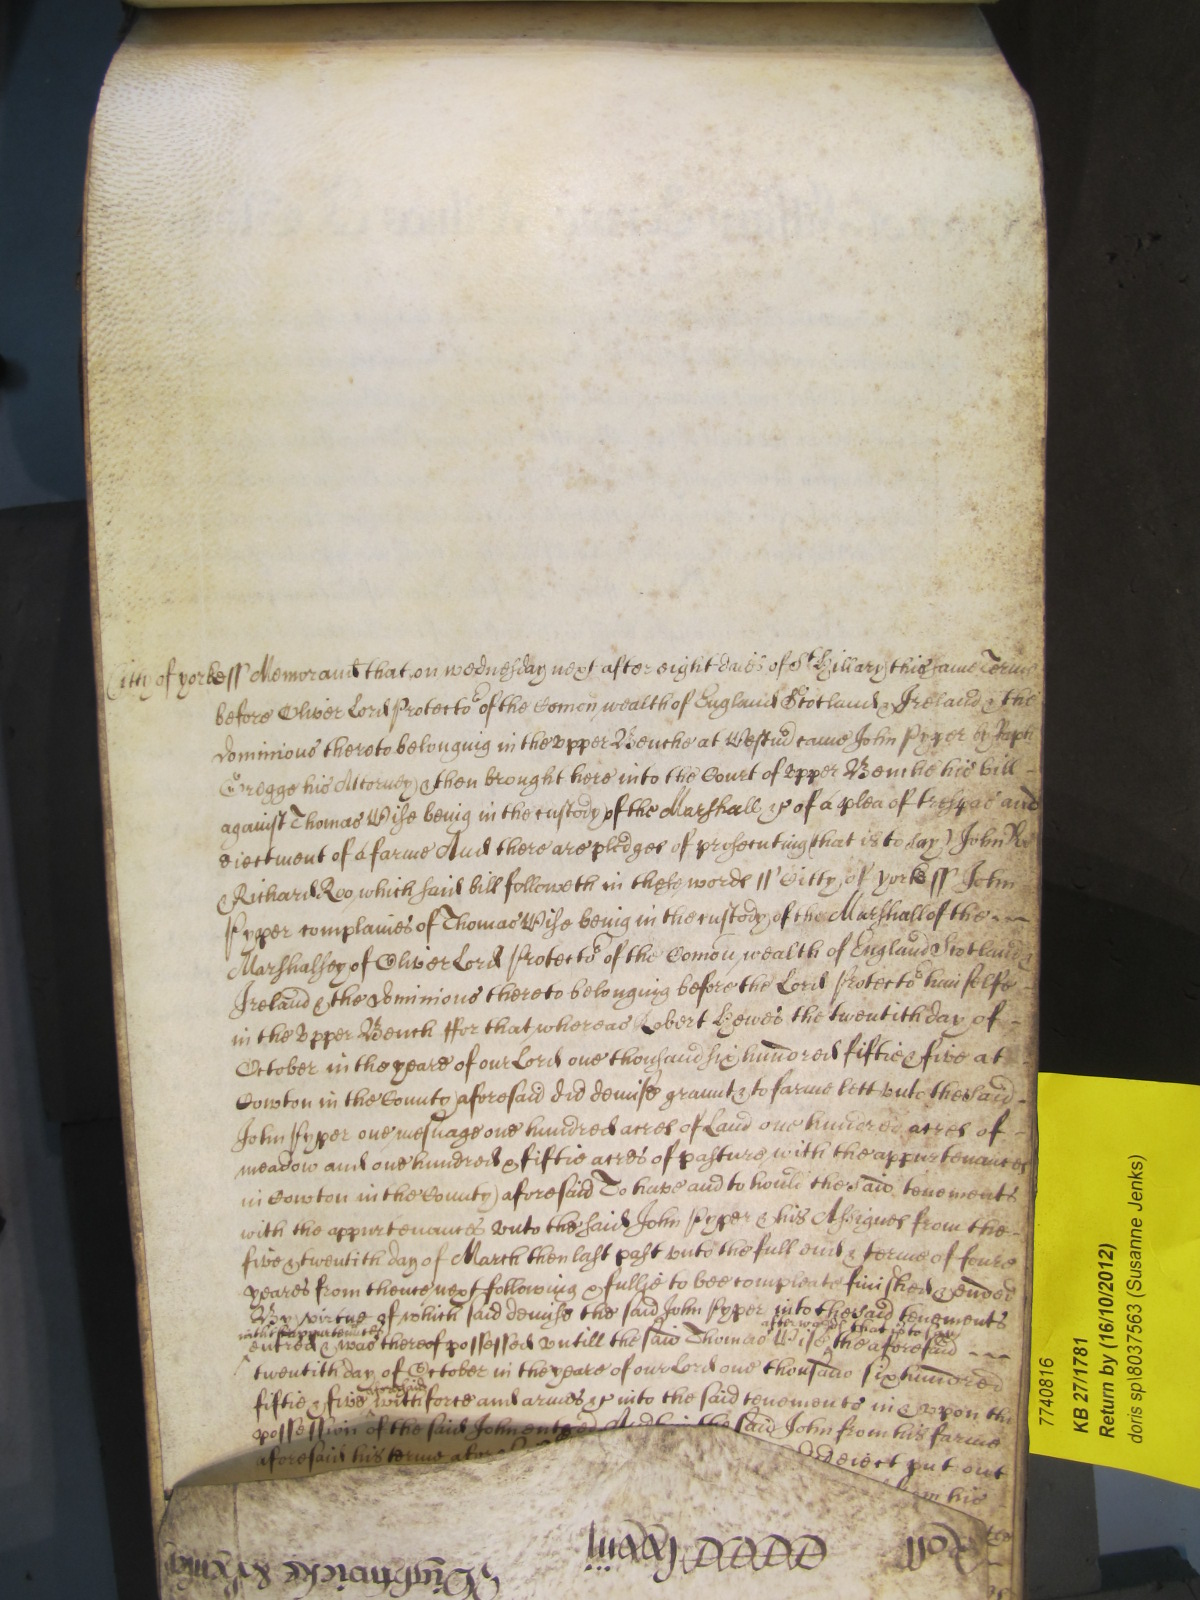 Citty of yorke ss Memorand that on wednesday next after eight daies of St Hillary this same Terme
before Oliver Lord Protector of the Comon wealth of England Scotland & Ireland & the
dominions thereto belonging in the upper Benche at Westm came John Pyper by Raph
Gregge his Attorney & then brought here into the Court of upper Benche his bill
against Thomas Wise being in the custody of the Marshall &c of a plea of trespas and
eiectment of a farme And there are pledges of prosecuting (that is to say) John
& Richard Roo, which said bill followeth in these words ss Citty of yorke ss John
Pyper complaines of Thomas Wise being in the custody of the Marshall of the
Marshalsey of Oliver Lord Protector of the Comon wealth of England Scotland &
Ireland & the dominions thereto belonging before the Lord Protector himselfe
in the Upper Bench ffor that whereas Robert Hewes the twentith day of
October in the yeare of our Lord one thousand six hundred fiftie & five at
Cowton in the County aforesaid did demise graunt & to farme lett unto the said
John Pyper one mesuage one hundred acres of Land one hundred acres of
meadow and one hundred & fiftie acres of pasture with the appurtenances
in Cowton in the County aforesaid To have and to hould the said tenements
with the appurtenances unto the said John Pyper & his Assignes from the
five & twentith day of March then last past unto the full end & terme of foure
yeares from thence next following & fullie to bee compleate finished & ended
By virtue of which said demise the said John Pyper into the said tenements
with thappurtenances afterwards that is to say
entred & was thereof possessed untill the said Thomas Wise the aforesaid
twentith day of October in the yeare of our Lord one thousand six hundred
aforesaid
fiftie & five with force and armes &c into the said tenements in & upon the
possession of the said John entred And him the said John from his farme
aforesaid his terme afore eiect put out
from his
Roll
7740816
KB 27/1781
Return by (16/10/2012)
doris sp\8037563 (Susanne Jenks)